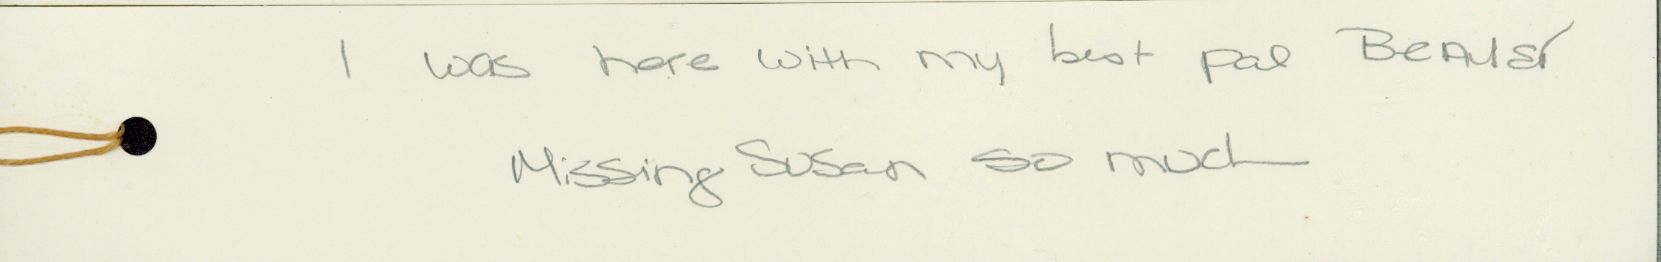 I was here with my best pal
Missing Susan so much